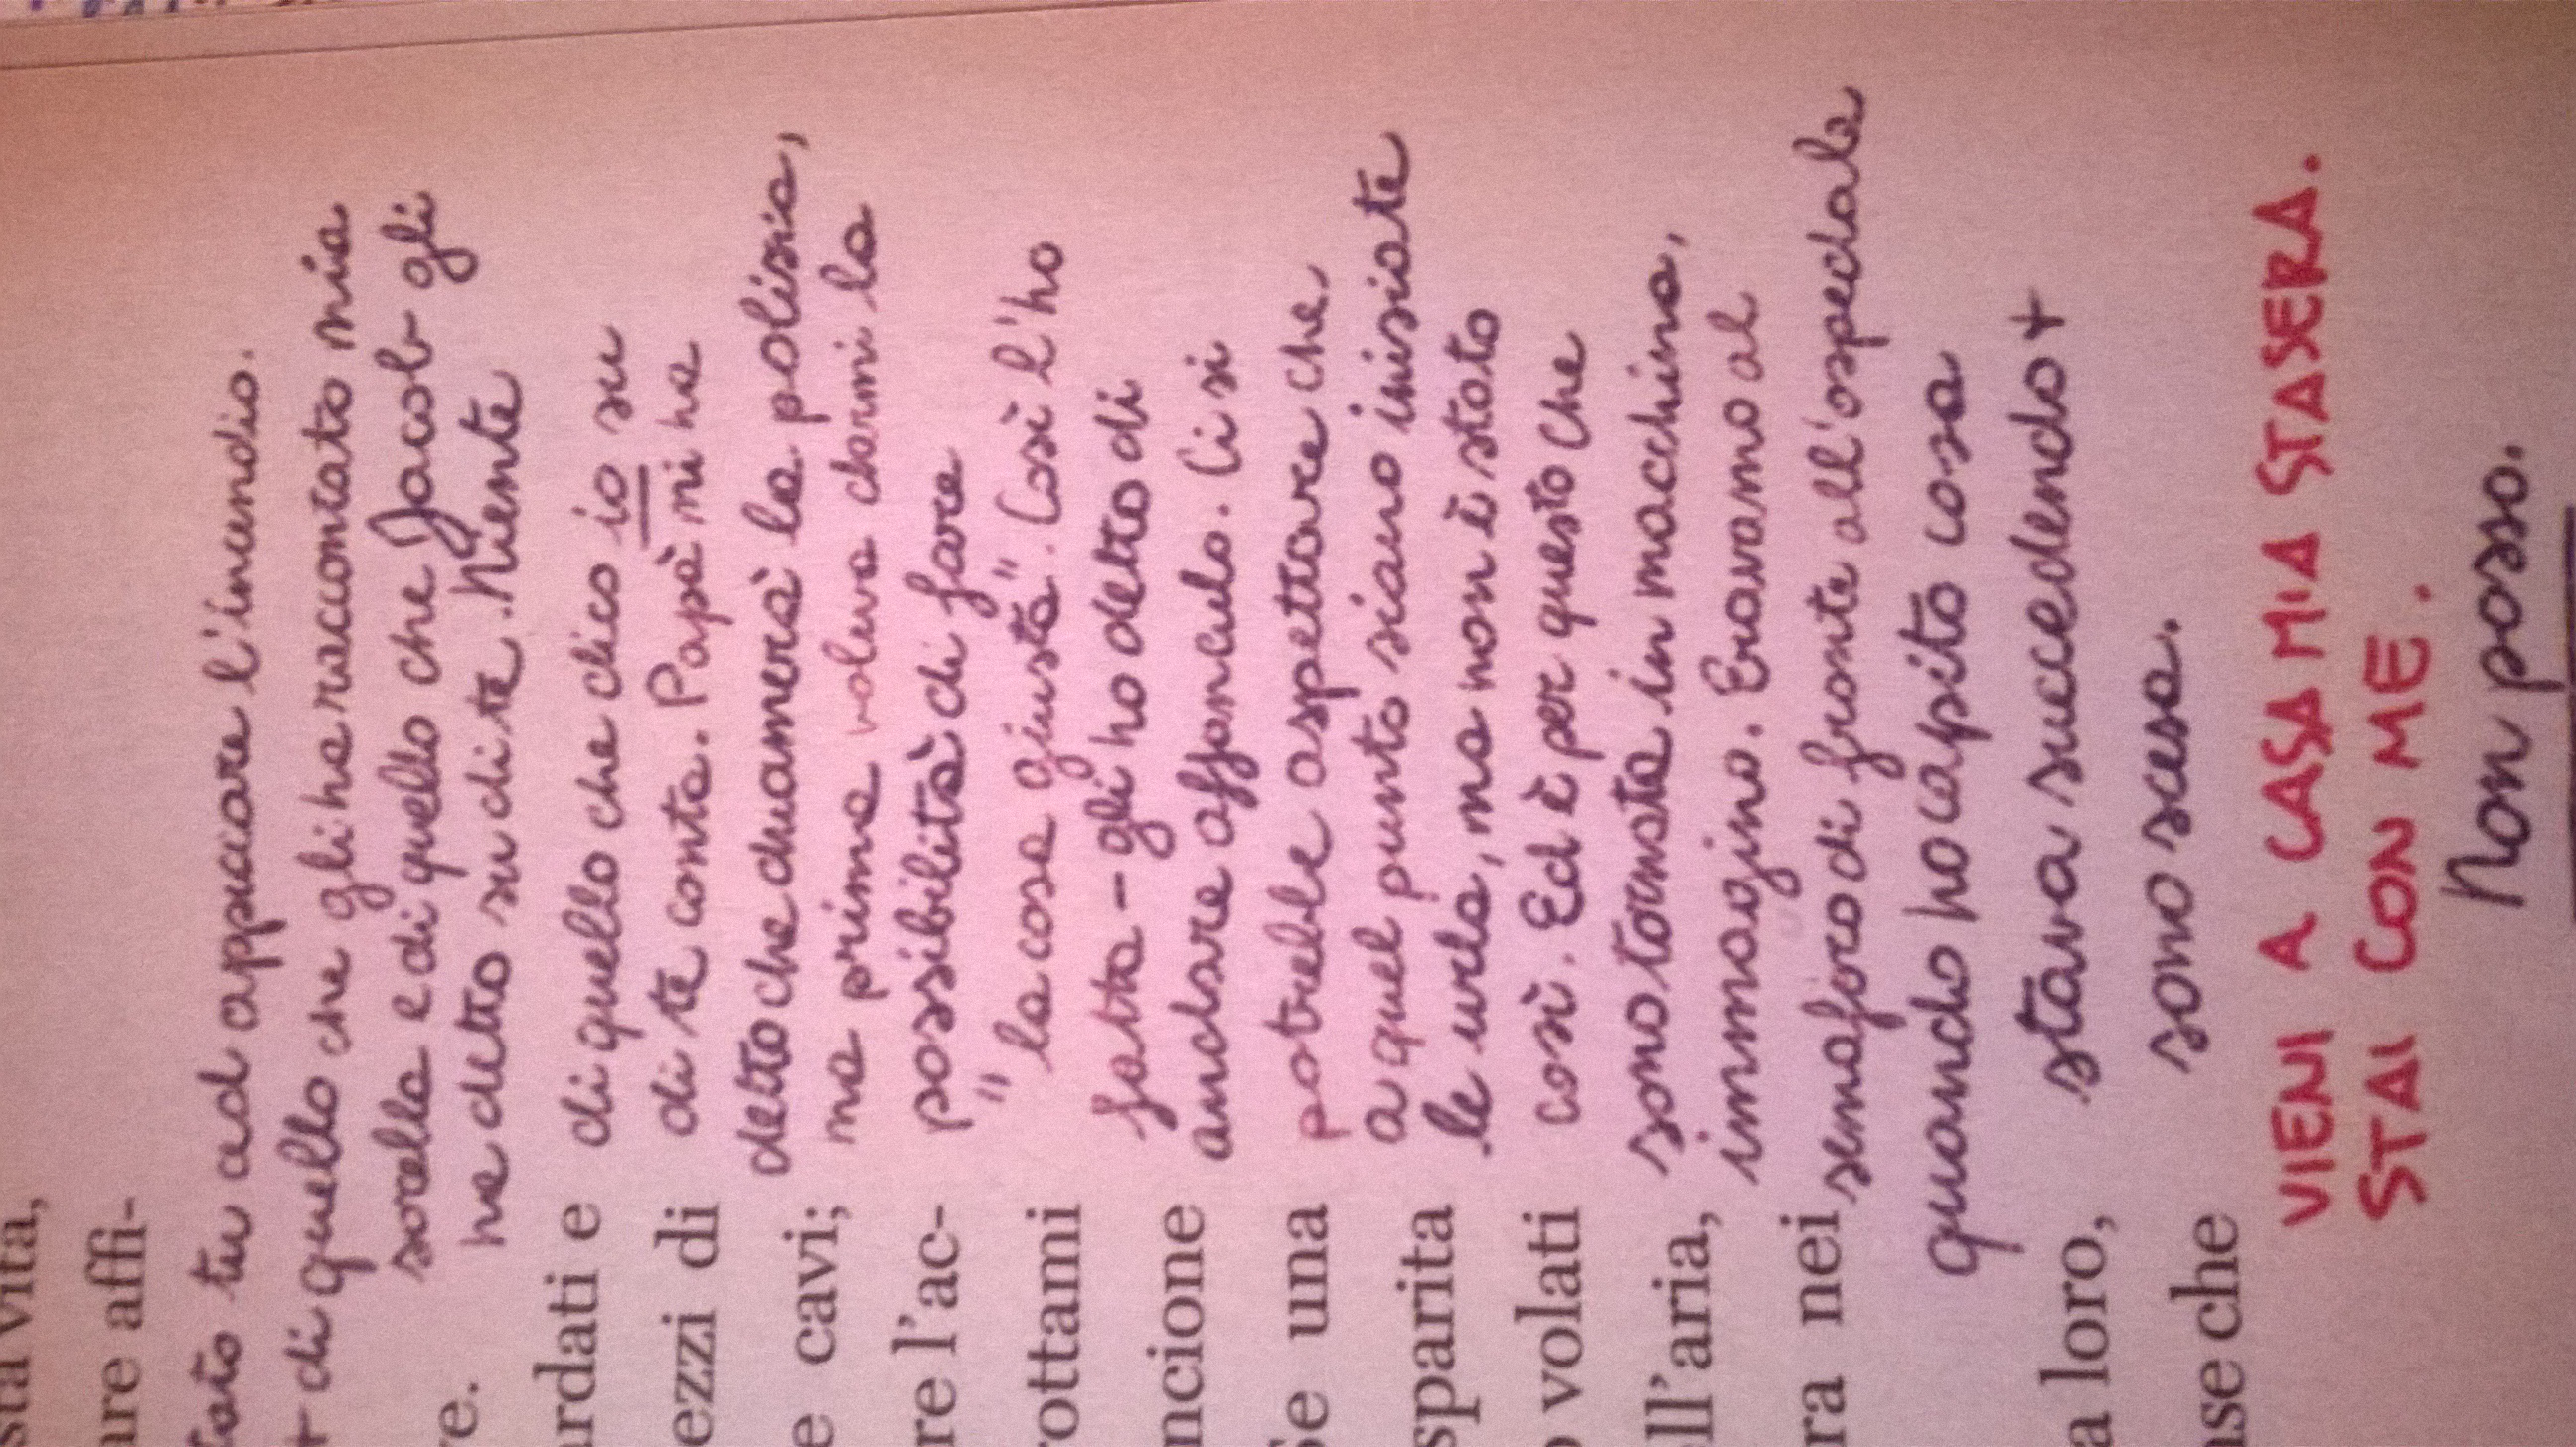 sta vita,
are affi-
tato tu ad appiccare l'incendio.
+ di quello che gli ha raccontato mia
sorella e di quello che Jacob gli
re.
ha detto su di te. Niente
ardati e
di quello che dico io su
ezzi di
di te conta. Papà mi ha
detto che chiamerà la polizia,
e cavi;
ma prima voleva darmi la
re l'ac-
possibilità di fare
ottami
"la cosa giusta". Così l'ho
fatta - gli ho detto di
ncione
andare affanculo. Ci si
Se una
potrebbe aspettare che
a quel punto siano iniziate
sparita
le urla, ma non è stato
o volati
così. Ed è per questo che
sono tornata in macchina,
ll'aria,
immagino. Eravamo al
ra nei
semaforo di fronte all'ospedale
quando ho capito cosa
a loro,
stava succedendo +
sono scesa.
ase che
VIENI A CASA MIA STASERA.
STAI CON ME.
Non posso.